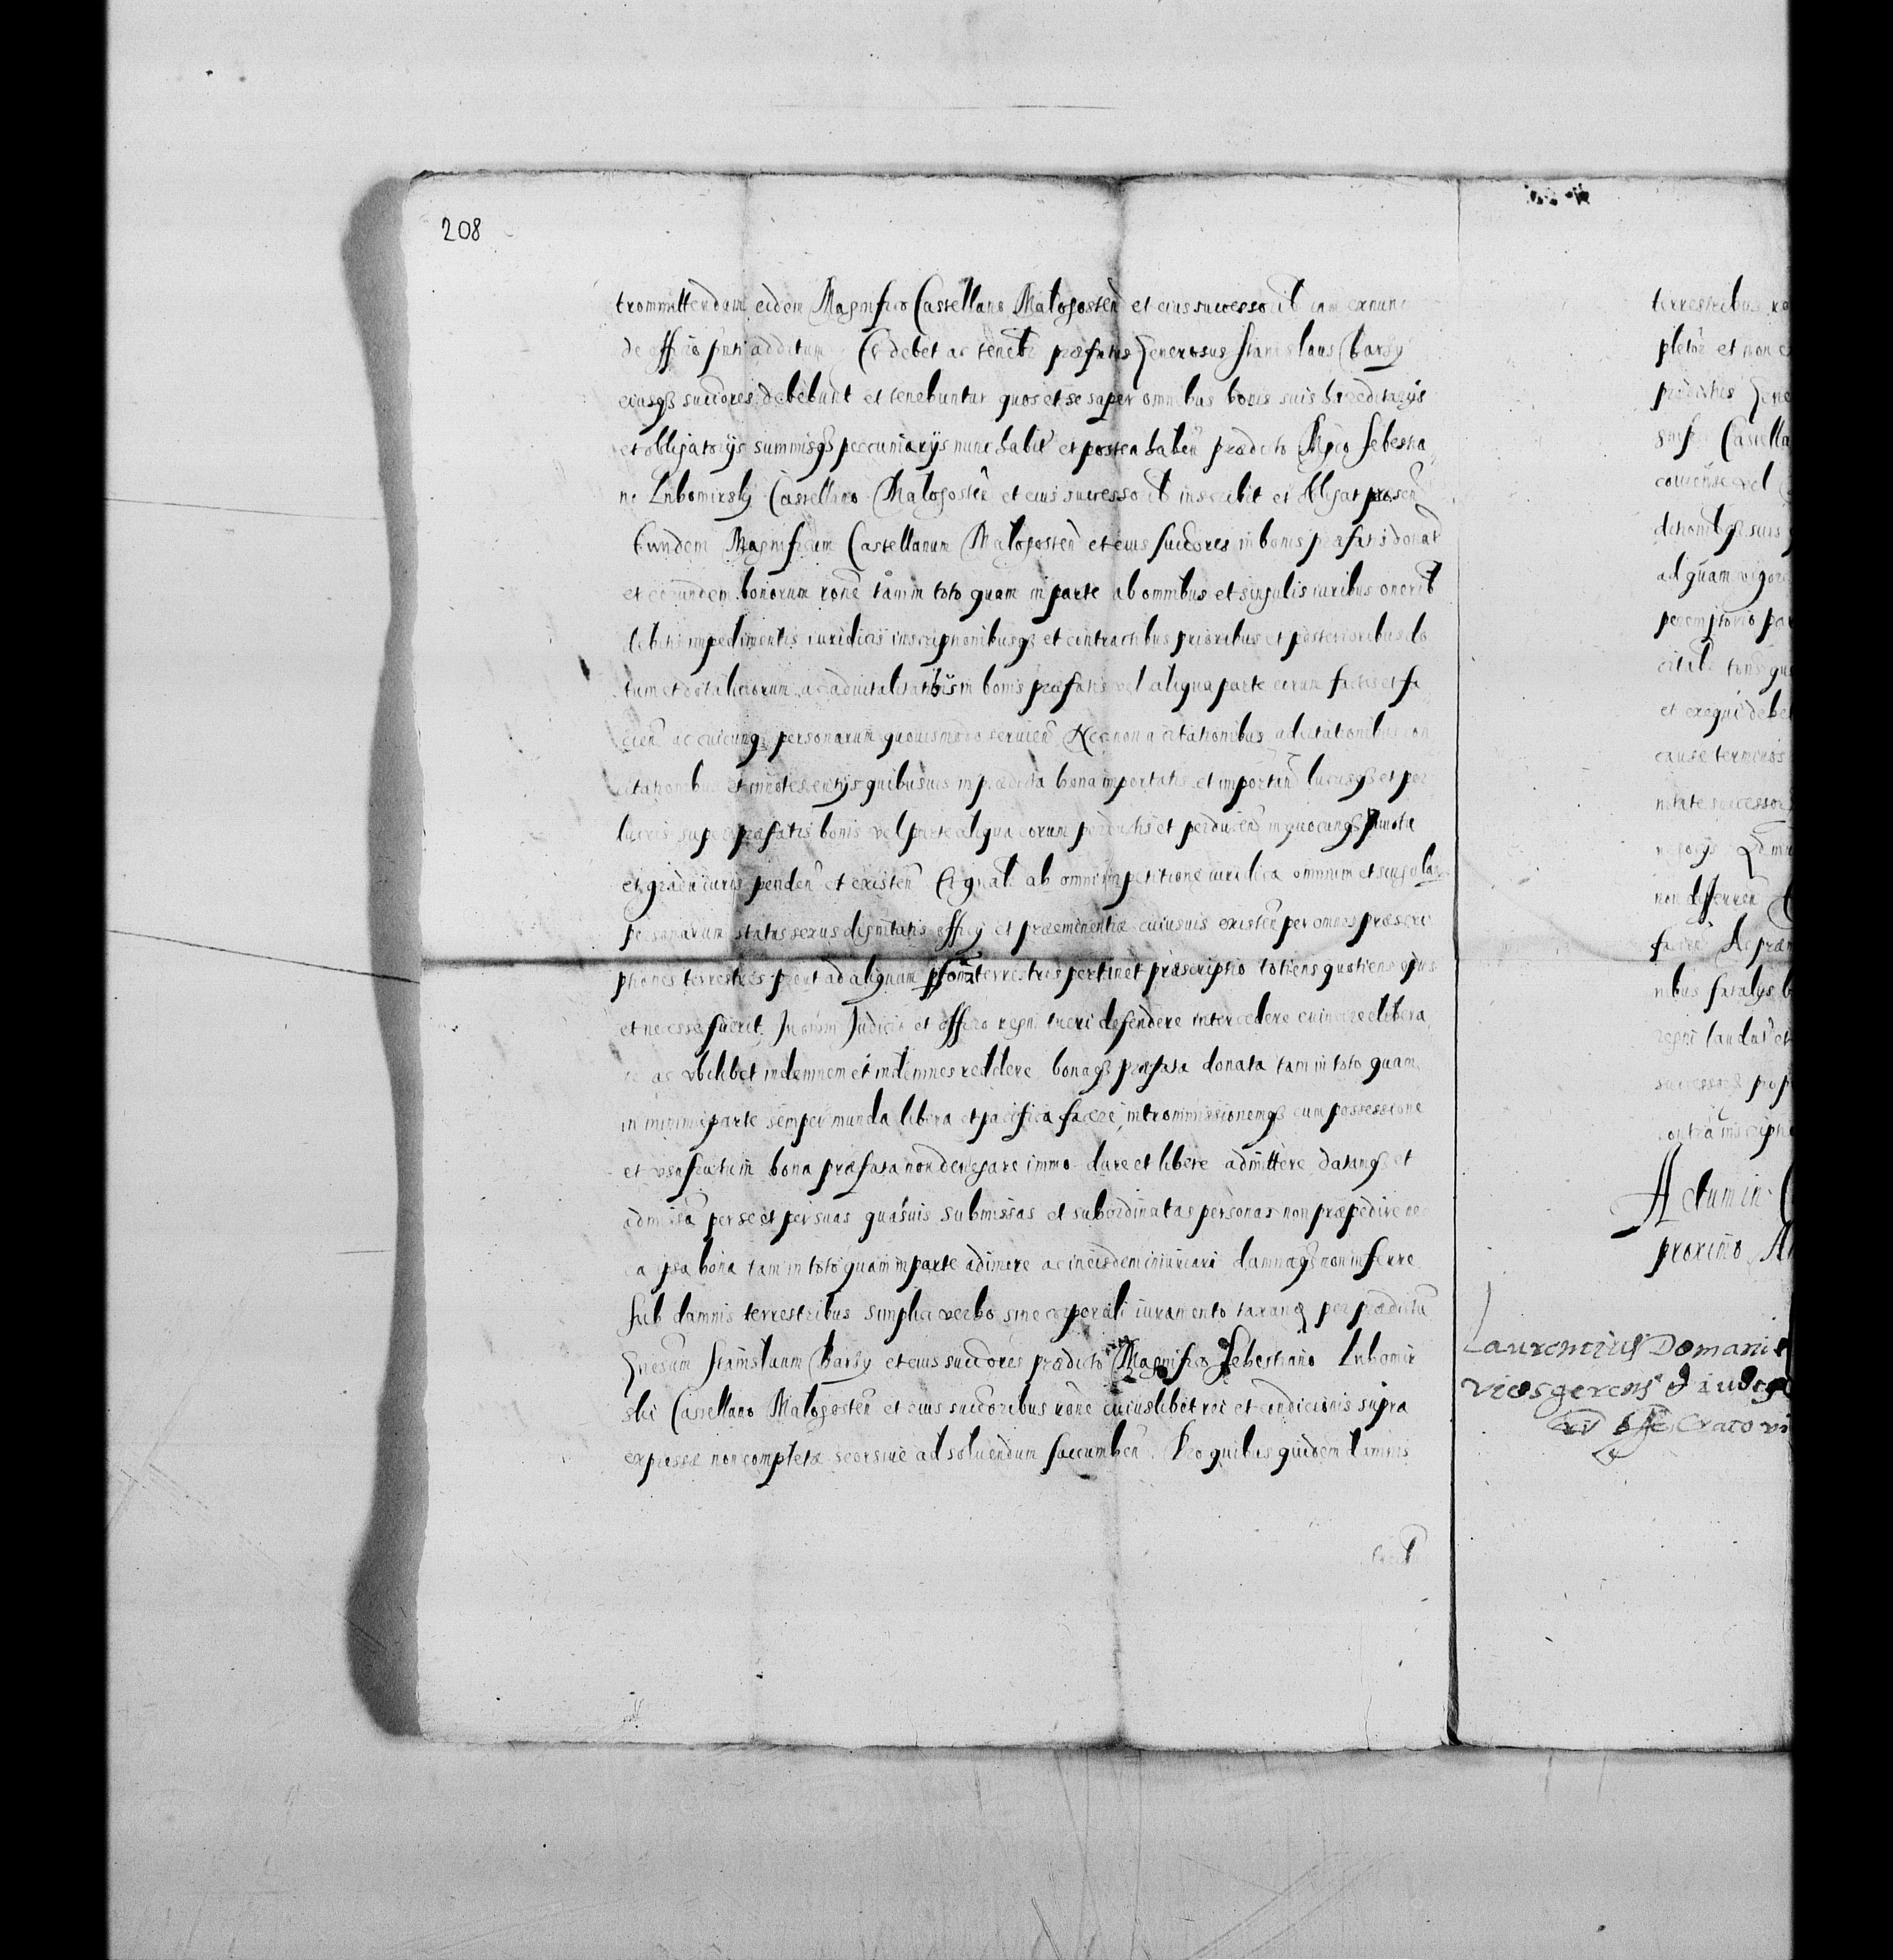 208
trommittendum eidem Magnifico Castellano Małogosten̄ et eius successoib iam exnunc
de officio pn̄ti additum Et debet ac tenetr præfatus Generosus Stanislaus Barzy
eiusqꝫ succōres debebunt et tenebuntur quos et se super omnibus bonis suis hæreditarijs
et obligatorijs summisqꝫ peccuniarijs nunc habit̄ et postea haben̄ prædicto Mgco Sebestia
no Lubomirsky Castellano Małogosten̄ et eius successoib inscribit et obligat præsen̄
Eundem Magnificum Castellanum Małogosten̄ et eius succōres in bonis præfatis donat̄
et eorundem bonorum rōne tam in toto quam in parte ab omnibus et singulis iuribus onerib
debitis impedimentis iuridicis inscriptionibusqꝫ et contractibus prioribus et posterioribus do
tum et dotaliciorum ac aduitalitatibus in bonis præfatis vel aliqua parte eorum factis et fa
cien̄ ac cuicunqꝫ personarum quouismodo seruien̄ Nec non a citationibus adcitationibus con
citationibus et innotescentijs quibusuis in prædicta bona importatis et importan̄ lucrisqꝫ et per
lucris super præfatis bonis vel parte aliqua eorum perductis et perducen̄ in quocunqꝫ puncto
et gradu iuris penden̄ et existen̄ Et gnal̄r ab omni impetitione iuridica omnium et singular
personarum status sexus dignitatis officij et præeminentiæ cuiusuis existen̄ per omnes præscri
ptiones terrestres prout ad aliquam psonā terrestris pertinet præscriptio totiens quotiens opus
et necesse fuerit In omni Judicio et officio regni tueri defendere intercedere euincere elibera
re ac vbilibet indemnem et indemnes reddere bonaqꝫ præfata donata tam in toto quam
in minima parte semper munda libera et pacifica facere, intromissionemqꝫ cum possessione
et vsufructu in bona præfata non denegare immo dare et libere admittere datamqꝫ et
admissā per se et per suas quasuis submissas et subordinatas personas non præpedire ne
ea ipsa bona tam in toto quam in parte adimere ac in eisdem iniuriari damnaqꝫ non inferre
sub damnis terrestribus simplici verbo sine corporali iuramento taxanđ per prædictū
Gnesum Stanislaum Barzy et eius succōres prædicto Magnifico Sebestiano Lubomir
ski Castellano Małogosten̄ et eius succōribus rōne cuiuslibet rei et condicionis supra
expressæ non completæ seorsiue ad soluendum succumben̄. Pro quibus quidem damnis
terrestribus
pletōe et non
prædictus Gene
gnif Castella
couiense vel
ditionibqꝫ suis
ad quam vigore
peremptorio par
et exequi debe
causæ terminos
nitate successor
non differren̄
facien̄ Ac præm
nibus fatalys
regni laudat̄ et
contra inscriptio
Actum in
proximo
Laurentius Domani
vicesgerens
Craco vi